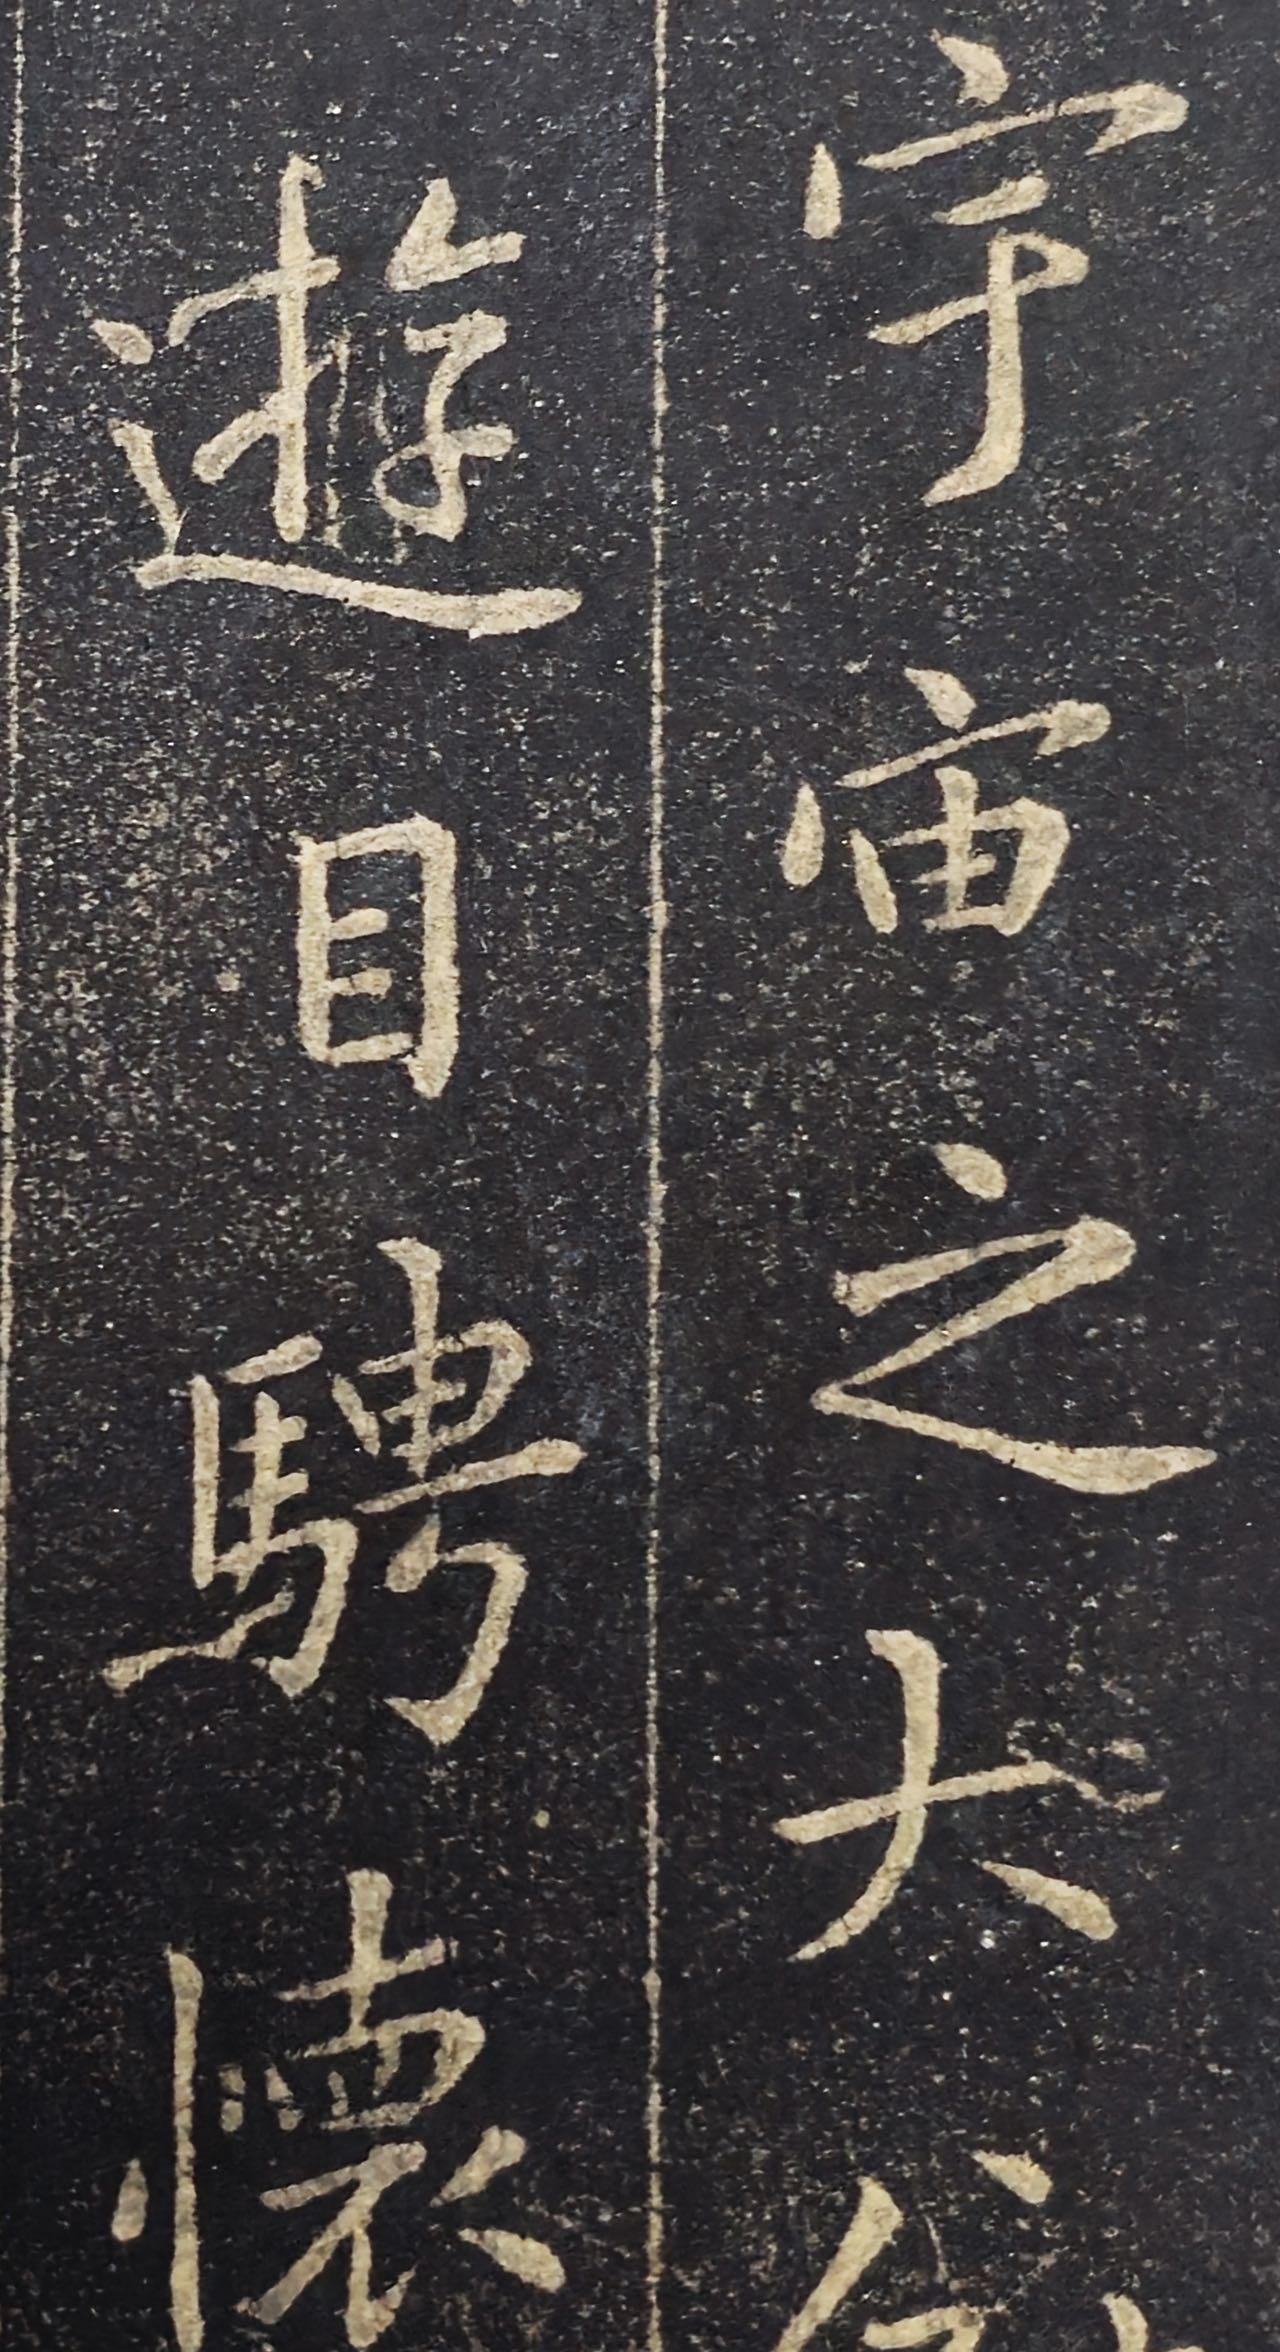 宇宙之大
遊目騁懷